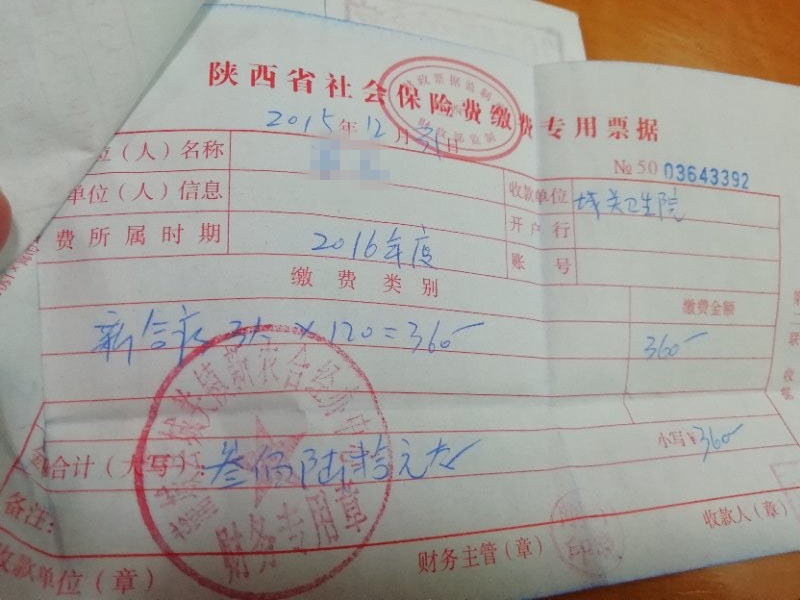 陕西省社会保险费缴费专用票据
2015年12月31日
财政部监制
№ 50 03643392
位（人）名称
收款单位 城关卫生院
单位（人）信息
开户行
费所属时期 2016年度
账号
缴费类别 缴费金额
新合疗 3人×120=360 360
合计（大写）：叁佰陆拾元 小写¥360
财务专用章
备注：
收款单位（章） 财务主管（章） 收款人（章）